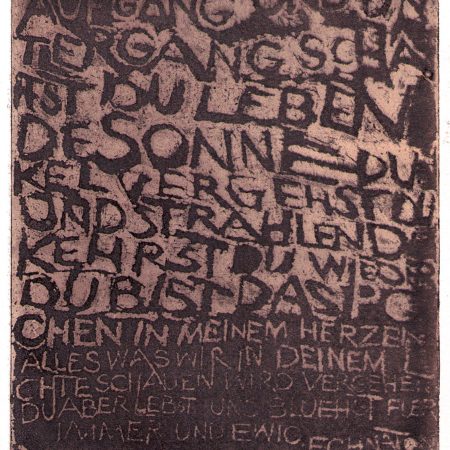 AUFGANG UND UN
TERGANG SCHA
FFST DU LEBEN
DE SONNE DUN
KEL VERGEHST DU
UND STRAHLEND
KEHRST DU WIEDER
DU BIST DAS PO
CHEN IN MEINEM HERZEN
ALLES WAS WIR IN DEINEM LI
CHTE SCHAUEN WIRD VERGEHEN
DU ABER LEBST UND BLUEHST FUER
IMMER UND EWIG ECHNATON